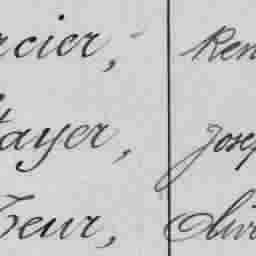 rcier, Ren
tayer, Josep
eur, Olive